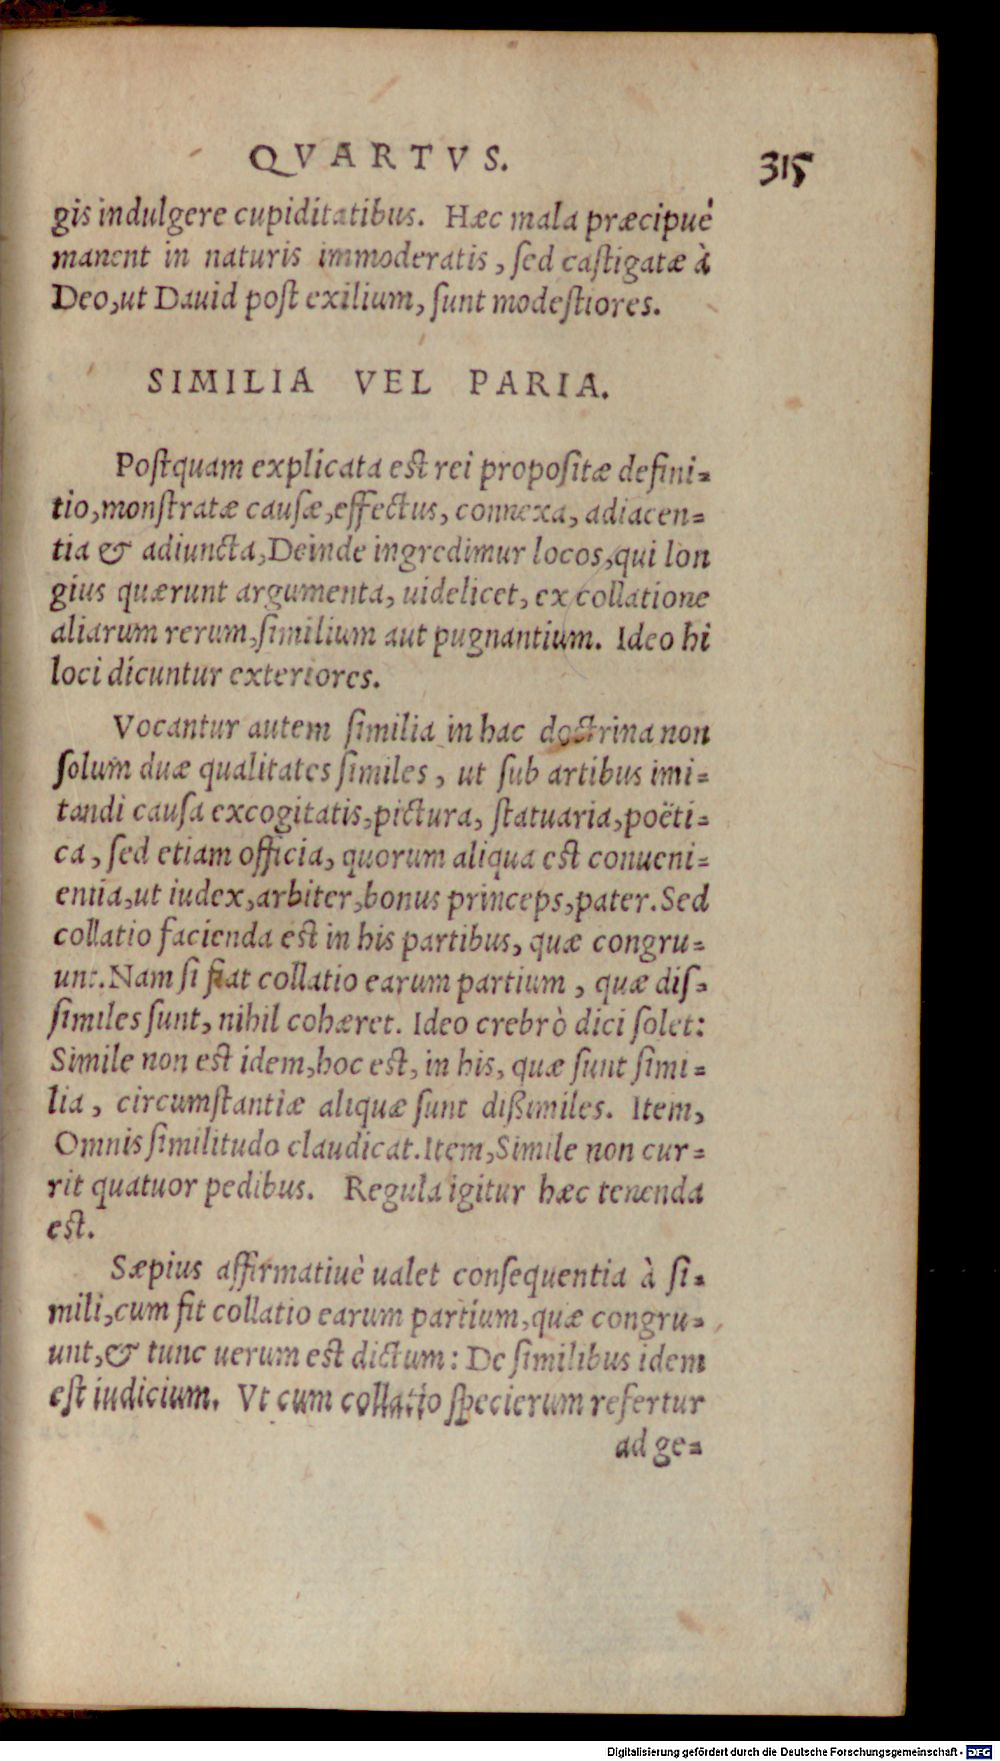 QVARTVS. 315
gis indulgere cupiditatibus. Hæc mala præcipuè
manent in naturis immoderatis, ſed caſtigatæ à
Deo, ut Dauid poſt exilium, ſunt modeſtiores.
SIMILIA VEL PARIA.
Poſtquam explicata eſt rei propoſitæ defini=
tio, monſtratæ cauſæ, effectus, connexa, adiacen=
tia & adiuncta, Deinde ingredimur locos, qui lon
gius quærunt argumenta, uidelicet, ex collatione
aliarum rerum, ſimilium aut pugnantium. Ideo hi
loci dicuntur exteriores.
Vocantur autem ſimilia in hac doctrina non
ſolum duæ qualitates ſimiles, ut ſub artibus imi=
tandi cauſa excogitatis, pictura, ſtatuaria, poëti=
ca, ſed etiam officia, quorum aliqua eſt conueni=
entia, ut iudex, arbiter, bonus princeps, pater. Sed
collatio facienda eſt in his partibus, quæ congru=
unt. Nam ſi fiat collatio earum partium, quæ diſ=
ſimiles ſunt, nihil cohæret. Ideo crebrò dici ſolet:
Simile non eſt idem, hoc eſt, in his, quæ ſunt ſimi=
lia, circumſtantiæ aliquæ ſunt dißimiles. Item,
Omnis ſimilitudo claudicat. Item, Simile non cur=
rit quatuor pedibus. Regula igitur hæc tenenda
eſt.
Sæpius affirmatiuè ualet conſequentia à ſi=
mili, cum fit collatio earum partium, quæ congru=
unt, & tunc uerum eſt dictum: De ſimilibus idem
eſt iudicium. Vt cum collatio ſpecierum refertur
ad ge=
Digitalisierung gefördert durch die Deutsche Forschungsgemeinschaft - DFG